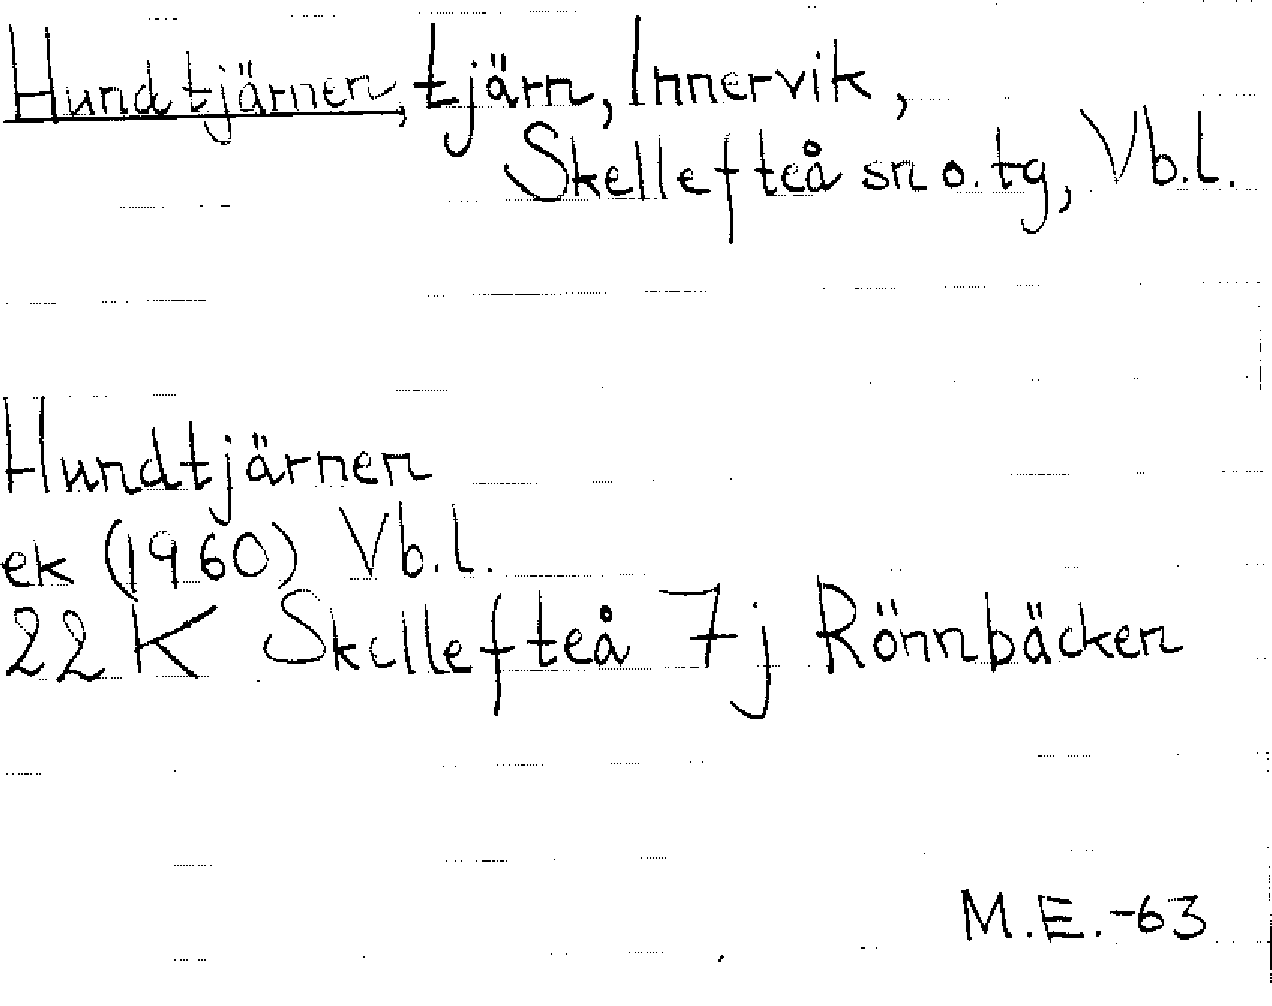 Hundtjärnen, tjärn, Innervik,
Skellefteå sn o. tg, Vb.l.
Hundtjärnen
ek (1960) Vb.l.
22 K Skellefteå 7 j Rönnbäcken
M.E.-63